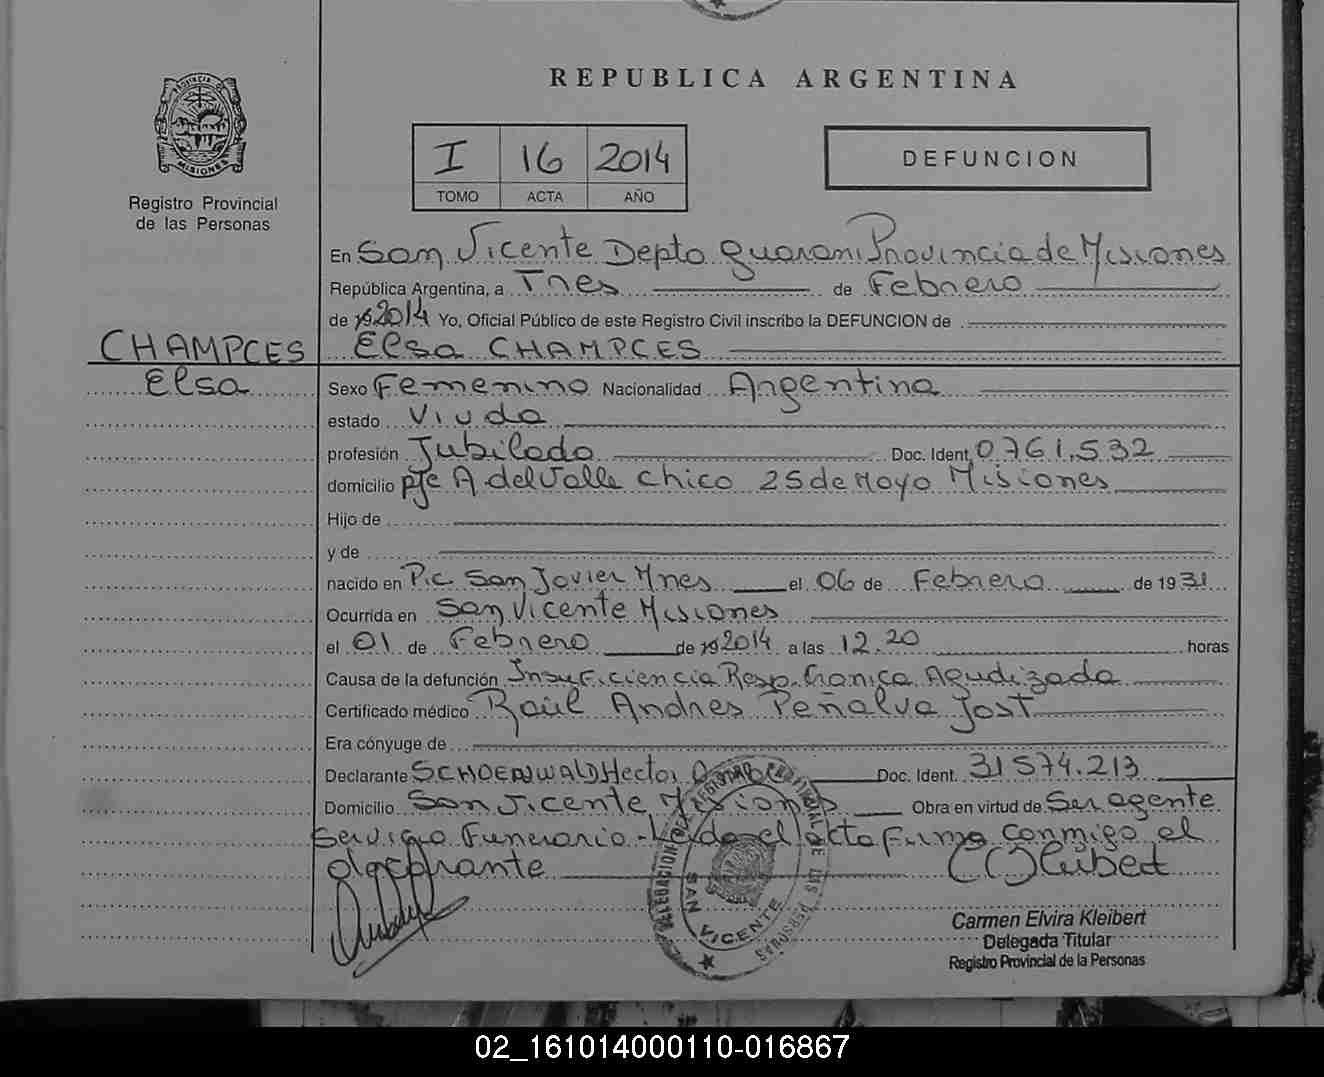 REPUBLICA ARGENTINA
PROVINCIA
MISIONES
Registro Provincial
de las Personas
I 16 2014
TOMO ACTA AÑO
DEFUNCION
En San Vicente Depto Guarani Provincia de Misiones
República Argentina, a Tres de Febrero
de 19 2014 Yo, Oficial Público de este Registro Civil inscribo la DEFUNCION de
CHAMPCES
Elsa
Elsa CHAMPCES
Sexo Femenino Nacionalidad Argentina
estado Viuda
profesión Jubilada Doc. Ident. 0761.532
domicilio pje A del Valle Chico 25 de Mayo Misiones
Hijo de
y de
nacido en Pic San Javier Mnes el 06 de Febrero de 1931
Ocurrida en San Vicente Misiones
el 01 de Febrero de 19 2014 a las 12.20 horas
Causa de la defunción Insuficiencia Resp. Cronica Agudizada
Certificado médico Raúl Andres Peñalva Jost
Era cónyuge de
Declarante SCHOENWALD Hector Doc. Ident. 31574.213
Domicilio San Vicente Misiones Obra en virtud de Ser agente
Servicio Funerario - Leida el acta firma conmigo el
declarante
DELEGACION DEL REGISTRO PROVINCIAL DE LAS PERSONAS
SAN VICENTE
Carmen Elvira Kleibert
Delegada Titular
Registro Provincial de la Personas
02_161014000110-016867